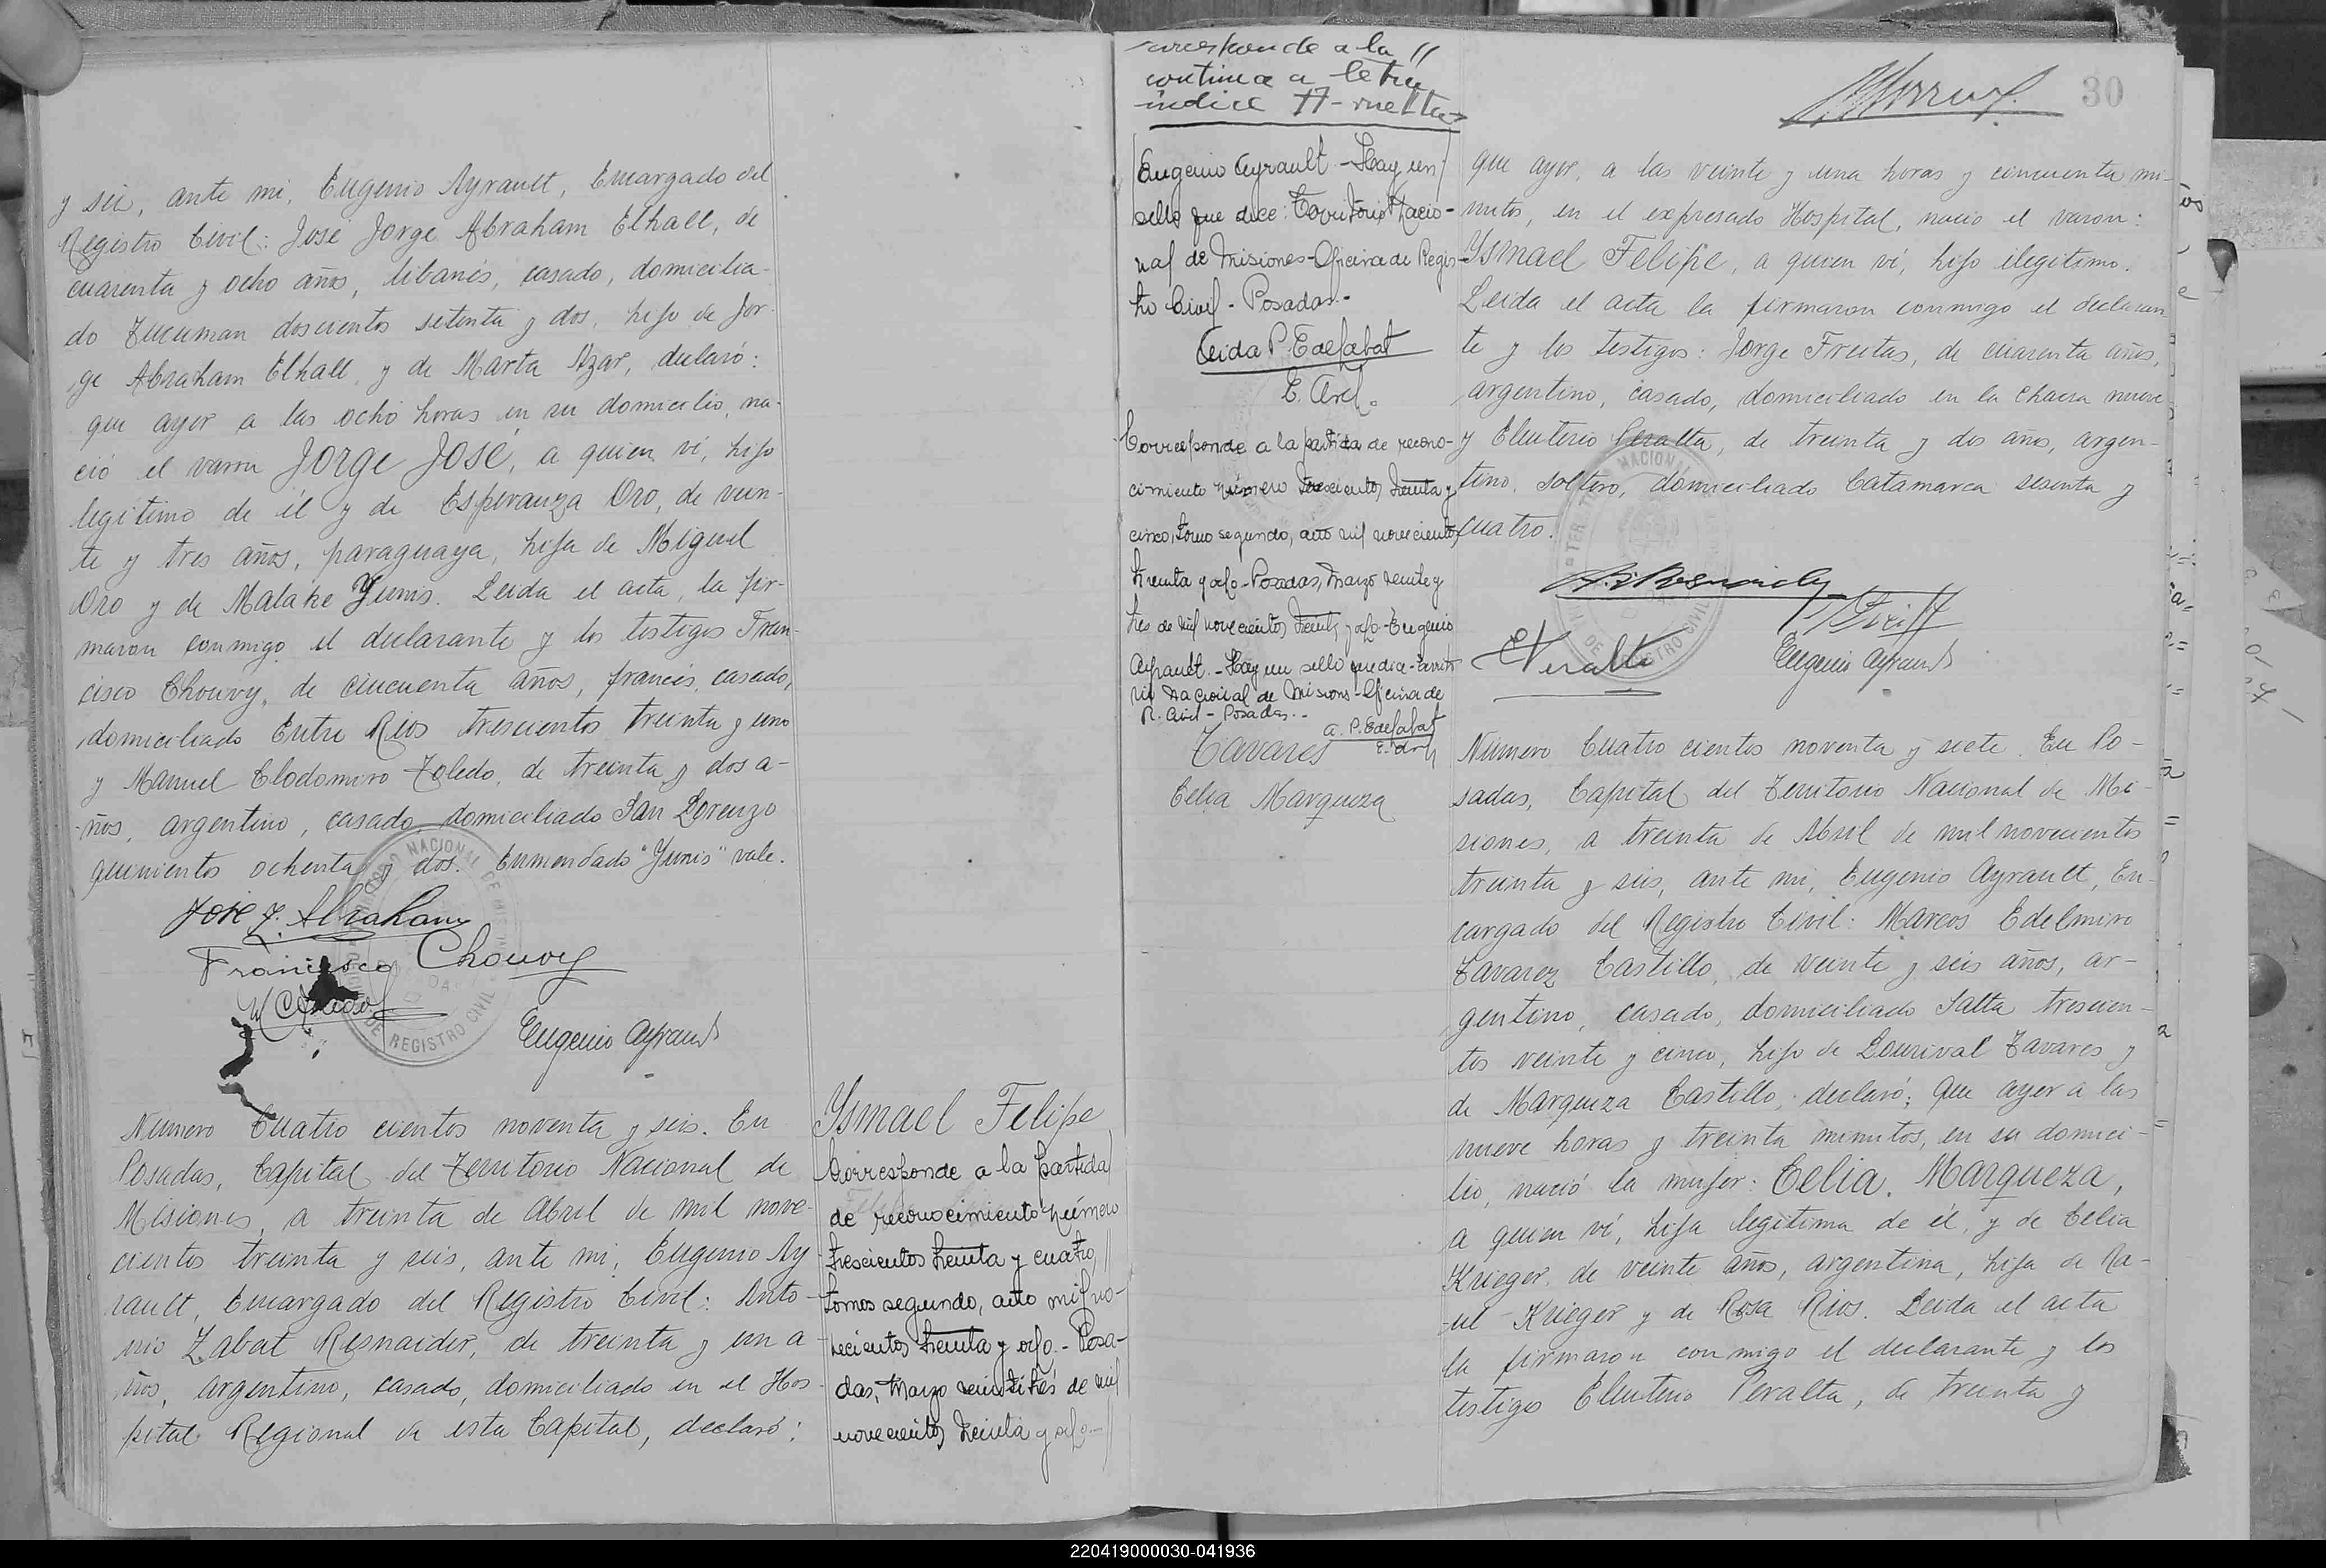 y seis, ante mi, Eugenio Ayrault, Encargado del
Registro Civil: José Jorge Abraham Elhall, de
cuarenta y ocho años, libanés, casado, domicilia-
do Tucuman doscientos setenta y dos, hijo de Jor-
ge Abraham Elhall, y de Marta Azar, declaró:
que ayer a las ocho horas en su domicilio, na-
ció el varon Jorge José, a quien ví, hijo
legitimo de él y de Esperanza Oro, de vein-
te y tres años, paraguaya, hija de Miguel
Oro y de Malake Yunis. Leida el acta, la fir-
maron conmigo el declarante y los testigos Fran-
cisco Chouvy, de cincuenta años, francés, casado,
domiciliado Entre Rios trescientos treinta y uno
y Manuel Clodomiro Toledo, de treinta y dos a-
ños, argentino, casado, domiciliado San Lorenzo
quinientos ochenta y dos. Enmendado "Yunis" vale.
José J. Abraham
Francisco Chouvy
Eugenio Ayrault
Número Cuatro cientos noventa y seis. En
Posadas, Capital del Territorio Nacional de
Misiones, a treinta de Abril de mil nove-
cientos treinta y seis, ante mi, Eugenio Ay-
rault, Encargado del Registro Civil: Anto-
nio Zabat Resnaider, de treinta y un a-
ños, argentino, casado, domiciliado en el Hos-
pital Regional de esta Capital, declaró:
Ysmael Felipe
Corresponde a la partida
de reconocimiento número
trescientos treinta y cuatro,
tomo segundo, año mil no-
vecientos treinta y ocho.- Posa-
das, Marzo veintitrés de mil
novecientos treinta y ocho.-
corresponde a la
continua a letra
indice H-vuelta
Eugenio Ayrault - Hay un
sello que dice: Territorio Nacio-
nal de Misiones-Oficina de Regis-
tro Civil - Posadas.-
E. Arel.
Corresponde a la partida de recono-
cimiento número trescientos treinta y
cinco, tomo segundo, año mil novecientos
treinta y ocho-Posadas, Marzo veinte y
tres de mil novecientos treinta y ocho-Eugenio
Ayrault.-Hay un sello que dice-Territo-
rio Nacional de Misiones-Oficina de
R. Civil - Posadas.-
Tavares
Celia Marqueza
30
que ayer, a las veinte y una horas y cincuenta mi-
nutos, en el expresado Hospital, nacio el varon:
Ysmael Felipe, a quien ví, hijo ilegitimo.
Leida el acta la firmaron conmigo el declaran-
te y los testigos: Jorge Freitas, de cuarenta años,
argentino, casado, domiciliado en la chacra nueve
y Eleuterio Peralta, de treinta y dos años, argen-
tino, soltero, domiciliado Catamarca sesenta y
cuatro.
E Peralta
Eugenio Ayrault
Número Cuatro cientos noventa y siete. En Po-
sadas, Capital del Territorio Nacional de Mi-
siones, a treinta de Abril de mil novecientos
treinta y seis, ante mi, Eugenio Ayrault, En-
cargado del Registro Civil: Marcos Edelmiro
Tavarez Castillo, de veinte y seis años, ar-
gentino, casado, domiciliado Salta trescien-
tos veinte y cinco, hijo de Lourival Tavares y
de Marqueza Castillo, declaró: Que ayer a las
nueve horas y treinta minutos, en su domici-
lio, nació la mujer: Celia Marqueza,
a quien ví, hija legitima de él, y de Celia
Krieger, de veinte años, argentina, hija de Ra-
ul Krieger y de Rosa Rios. Leida el acta
la firmaron conmigo el declarante y los
testigos Eleuterio Peralta, de treinta y
220419000030-041936